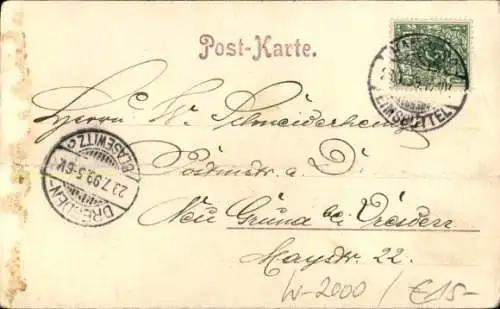 Post-Karte.
EIMSBÜTTEL
Herrn W. Schneiderheinze
a. D.
Neu Gruna bei Dresden
Maystr. 22.
DRESDEN-
BLASEWITZ c
23.7.99.5-6N.
W-2000 / €15-